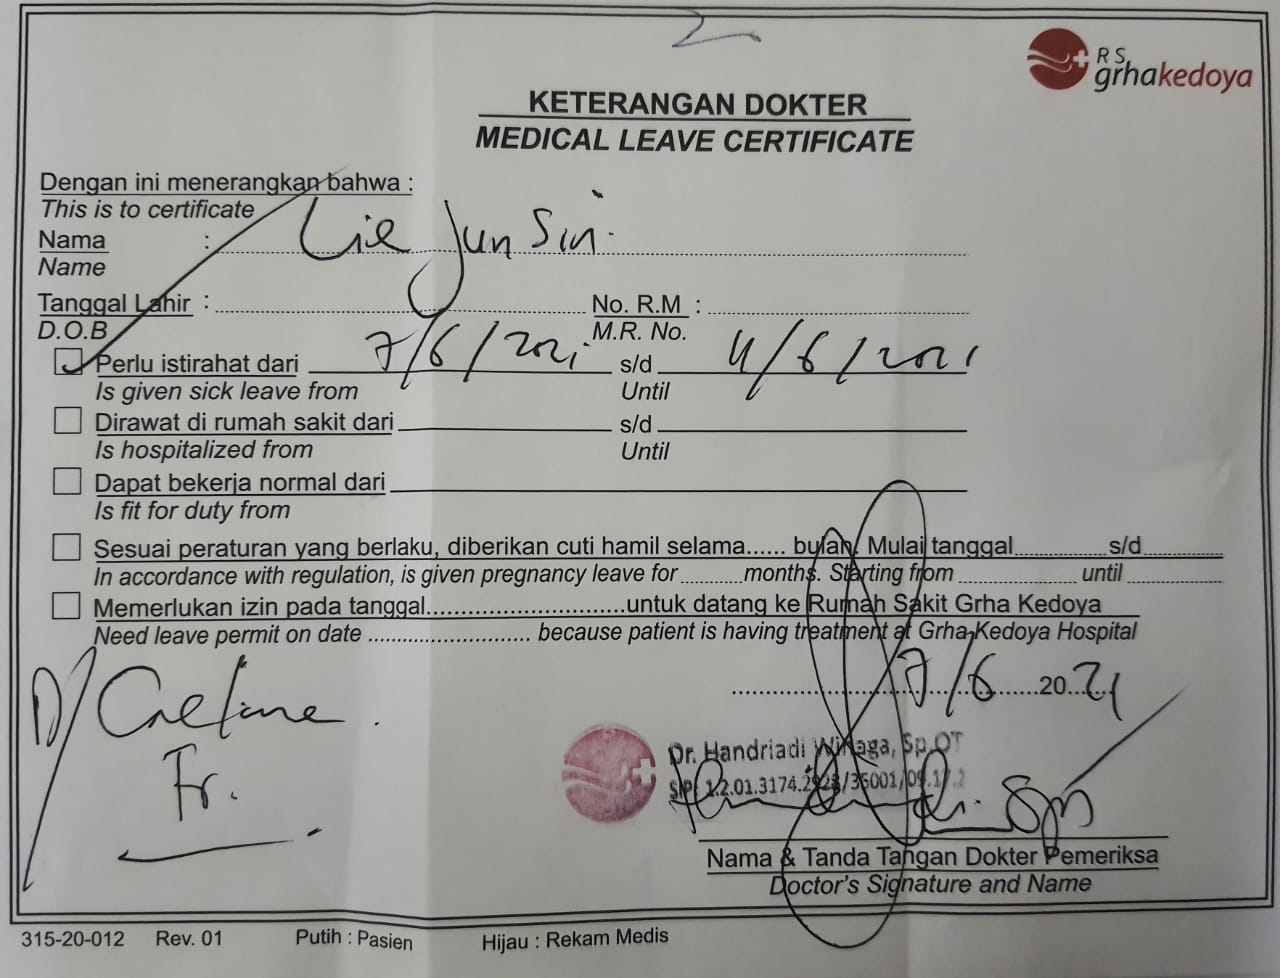 RS
grhakedoya
KETERANGAN DOKTER
MEDICAL LEAVE CERTIFICATE
Dengan ini menerangkan bahwa :
This is to certificate
Nama : Lie Jun Sin
Name
Tanggal Lahir : No. R.M :
D.O.B M.R. No.
Perlu istirahat dari 7/6/2021 s/d 11/6/2021
Is given sick leave from Until
Dirawat di rumah sakit dari s/d
Is hospitalized from Until
Dapat bekerja normal dari
Is fit for duty from
Sesuai peraturan yang berlaku, diberikan cuti hamil selama...... bulan. Mulai tanggal s/d
In accordance with regulation, is given pregnancy leave for months. Starting from until
Memerlukan izin pada tanggal untuk datang ke Rumah Sakit Grha Kedoya
Need leave permit on date because patient is having treatment at Grha Kedoya Hospital
7/6 2021
D/
Fr.
Dr. Handriadi Winaga, Sp.OT
Nama & Tanda Tangan Dokter Pemeriksa
Doctor's Signature and Name
315-20-012 Rev. 01 Putih : Pasien Hijau : Rekam Medis